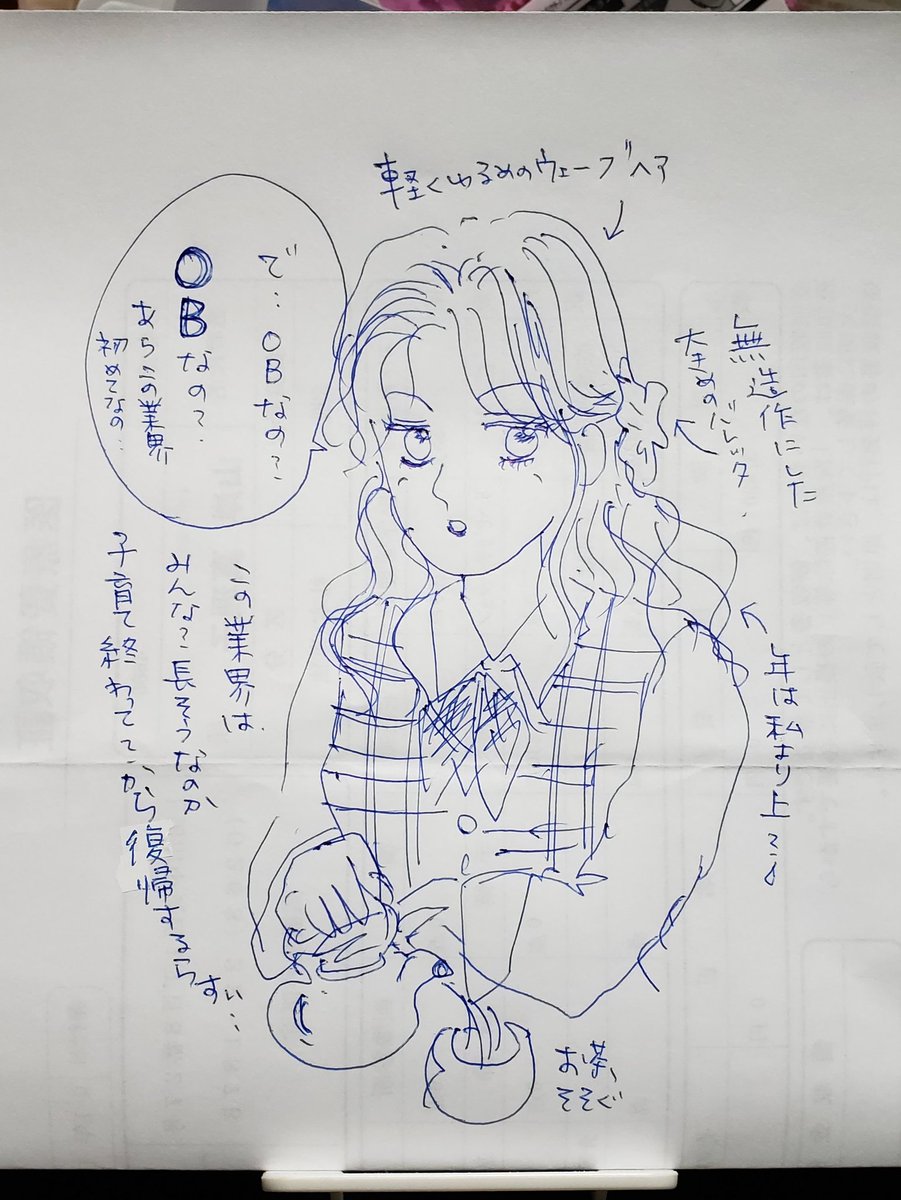 軽くゆるめのウェーブヘア
無造作にした
大きめのバレッタ
で…OBなの?
OBなの?
あらこの業界
初めてなの…
年は私より上?
この業界は
みんな?長そうなのか
子育て終わってから復帰するらすぃ…
お茶、
そそぐ